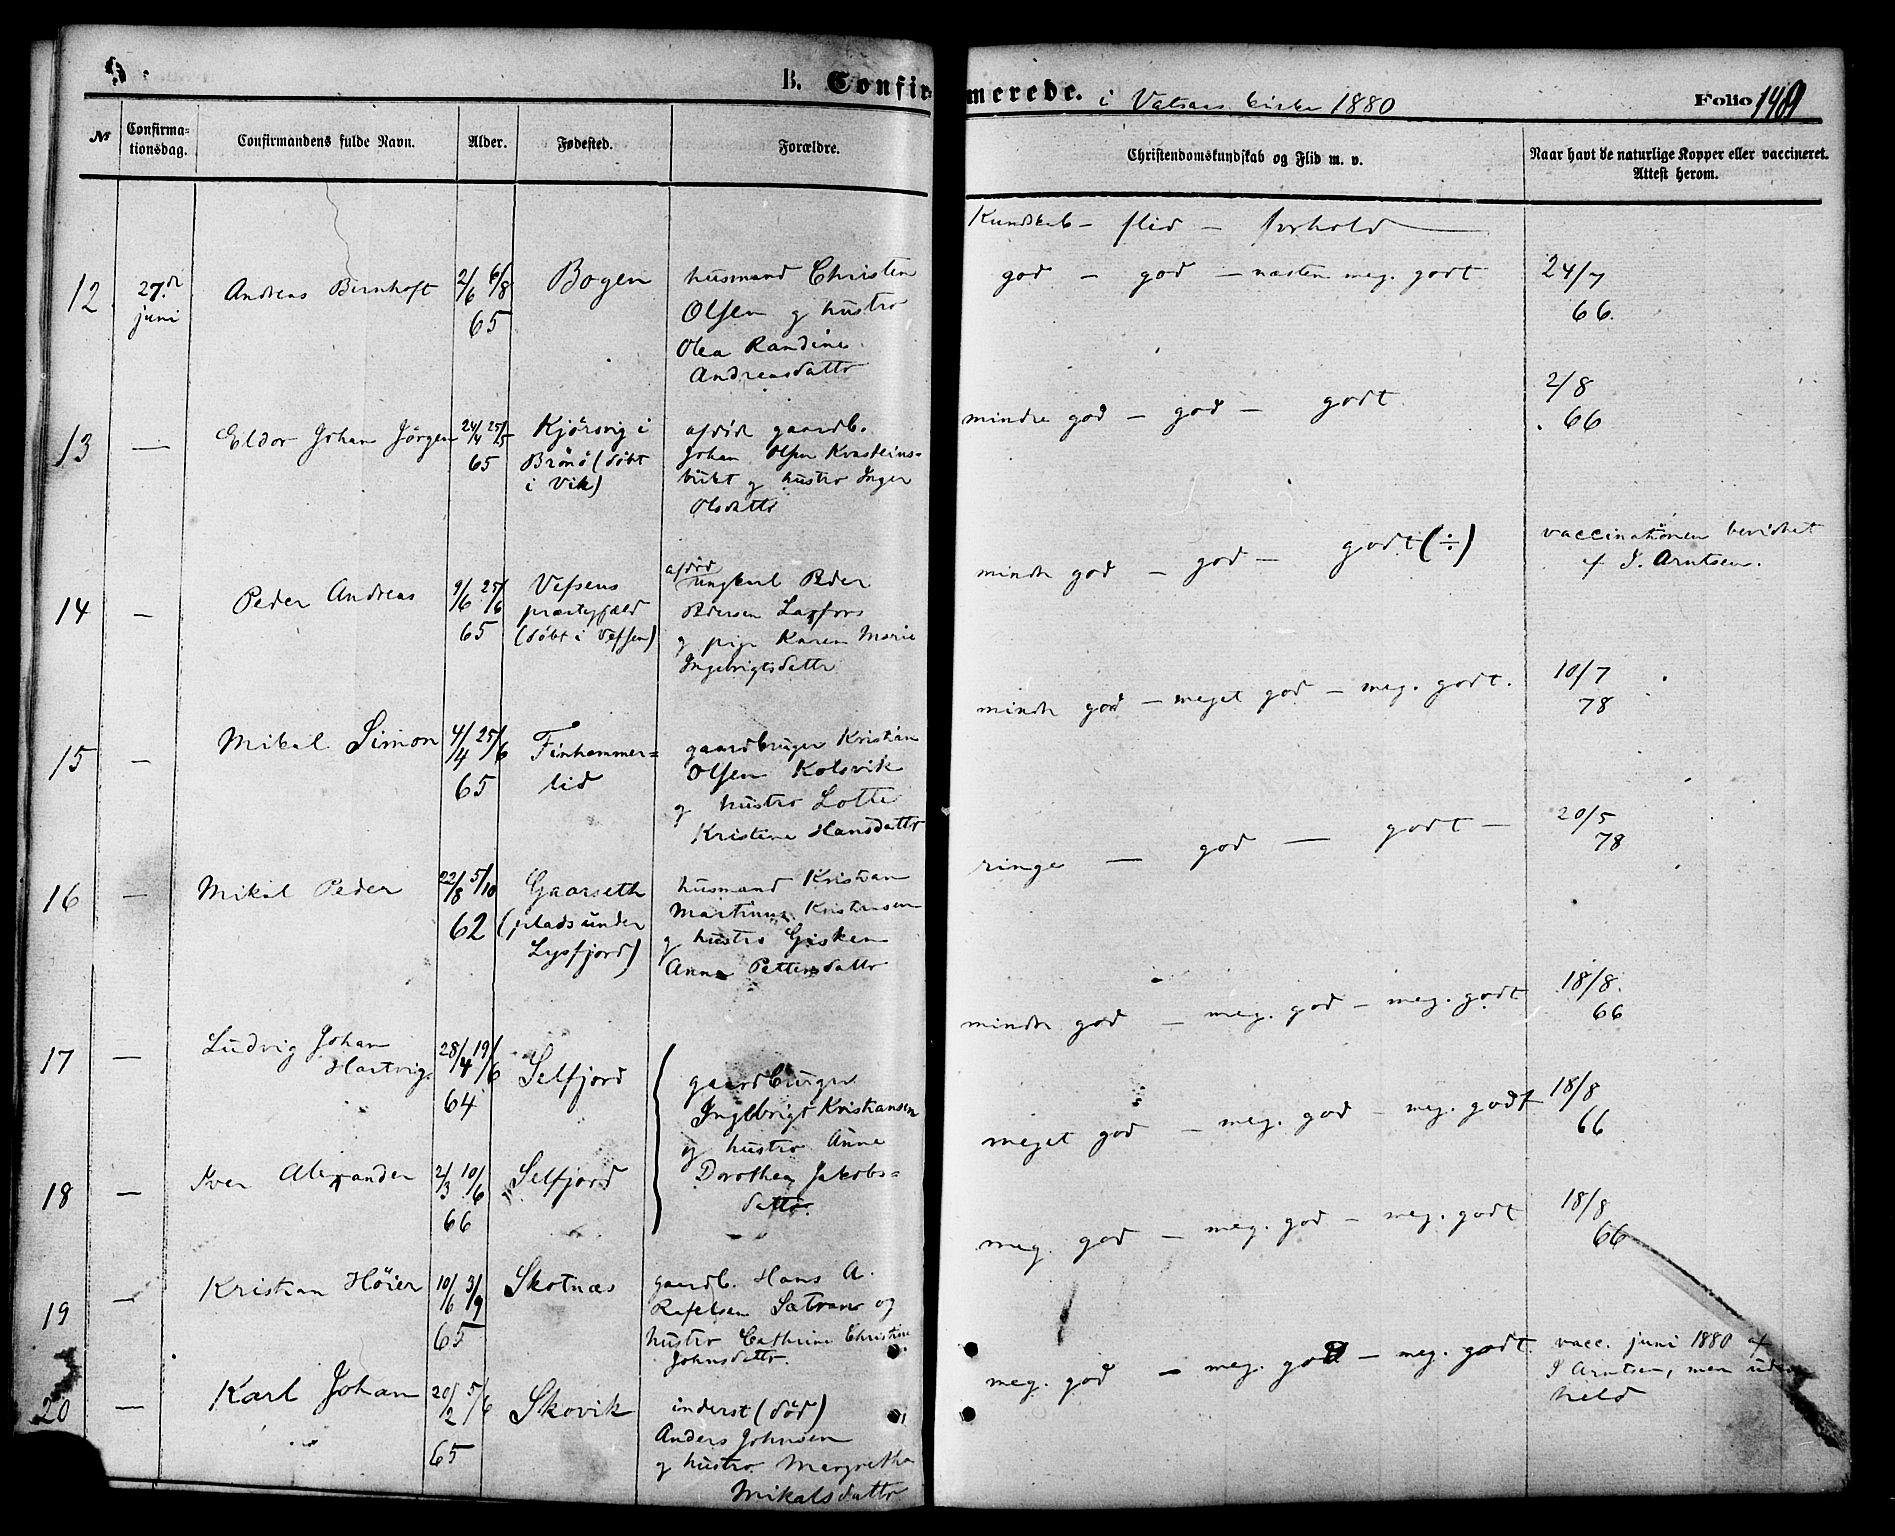 B. Confirmerede. i Vatsaas kirke 1880
Folio 149
№
Confirmationsdag.
Confirmandens fulde Navn.
Alder.
Fødested.
Forældre.
Christendomskundskab og Flid m. v.
Naar havt de naturlige Kopper eller vaccineret.
Attest herom.
Kundskab - flid - forhold
12
27.de
juni
Andreas Bernhoft
2/6 6/8
65
Bogen
husmand Christen
Olsen og hustro
Olea Randine
Andreasdattr
god - god - næsten meg. godt
24/7
66.
13
—
Eldor Johan Jörgen
24/4 25/5
65
Kjörsvig i
Brönö (döbt
i Vik)
afdöd gaardb.
Johan Olsen Kvasteins=
bukt og hustro Inger
Olsdattr
mindre god - god - godt
2/8
66
14
—
Peder Andreas
9/6 25/6
65
Vefsens
præstegjæld
(döbt i Vefsen)
afdöd
ungkarl Peder
Pedersen Laxfors
og pige Karen Marie
Ingebrigtsdattr
mindre god - god - godt (÷)
vaccinationen bevidnet
af I. Arntsen.
15
—
Mikal Simon
4/4 25/6
65
Finhammer=
lid
gaardbruger Kristian
Olsen Kolsvik
og hustro Lotte
Kristine Hansdattr
mindre god - meget god - meg. godt.
10/7
78
16
—
Mikal Peder
22/8 5/10
62
Gaarseth
(plads under
Lysfjord)
husmand Kristian
Martinus Kristiansen
og hustro Gisken
Anna Pettersdattr
ringe - god - godt -
20/5
78
17
—
Ludvig Johan
Hartvig
28/4 19/6
64
Selfjord
gaardbruger
Ingebrigt Kristiansen
og hustro Anne
Dorothea Jakobs=
dattr.
mindre god - meg. god - meg. godt
18/8
66
18
—
Iver Alexander
2/3 10/6
66
Selfjord
meget god - meg. god - meg. godt
18/8
66
19
—
Kristian Höier
10/6 3/9
65
Skotnæs
gaardb. Hans A.
Rafelsen Sætran og
hustro Cathrine Christine
Johnsdattr.
meg. god - meg. god - meg. godt
18/8
66
20
—
Karl Johan
20/2 5/6
65
Skovik
inderst (död)
Anders Johnsen
og hustro Margretha
Mikalsdattr
meg. god - meg. god - meg. godt.
vacc. juni 1880 af
I Arntsen, men uden
held